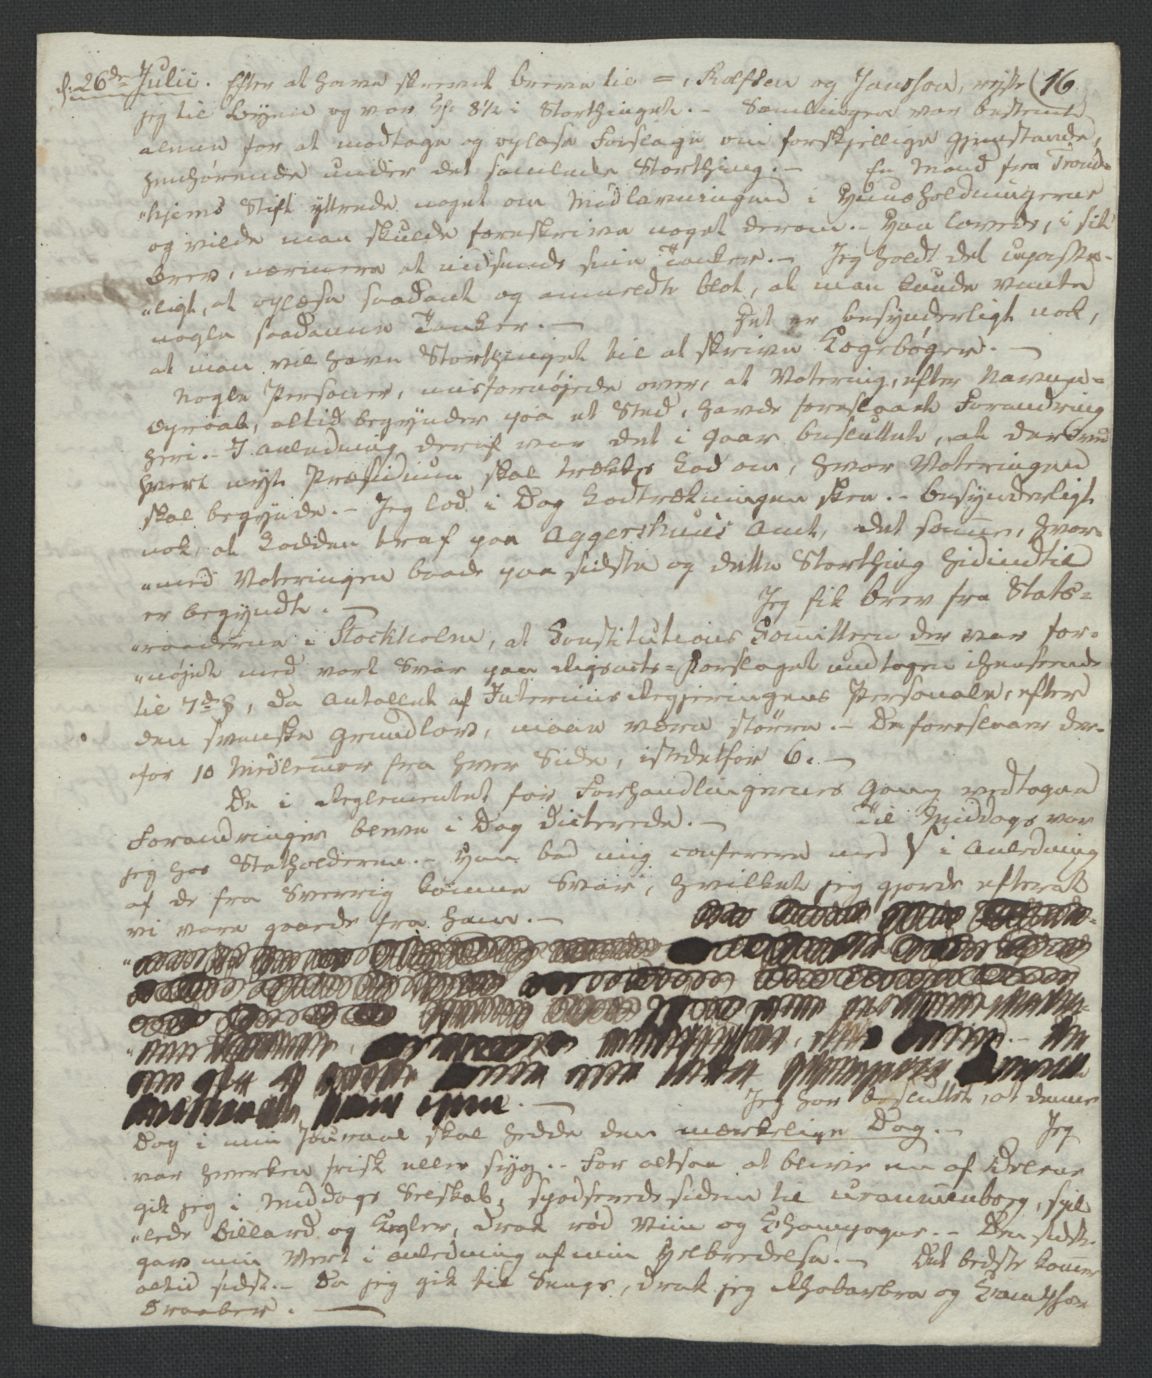 d: 26de Julii. Efter at have skrevet breve til =, Rolfsen og Jansson, rejste 16.
jeg til Byen og var Kl. 8½ i Storthinget. – Samlingen var bestemt
alene for at modtage og oplæse Forslage om forskjellige Gjenstande,
henhørende under det samlede Storthing. – En Mand fra Trond-
"hjems Stift yttrede noget om Madlavningen i Huusholdningerne
og vilde man skulde foreskrive noget derom. – Han lovede, i sit
Brev, nærmere at indsende sine Tanker. – Jeg holdt det upasse-
"ligt, at oplæse saadant og anmeldte blot, at man kunde vente
nogle saadanne Tanker. – Det er besynderligt nok,
at man vil have Storthinget til at skrive Kogebøger. –
Nogle Personer, misfornøjede over, at Votering, efter Navne-
Opraab, altid begynder paa et Sted, havde foreslaaet Forandring
heri. – I Anledning deraf var det i Gaar besluttet, at der ved
hvert nyt Præsidium skal trækkes Lod om, hvor Voteringen
skal begynde. – Jeg lod i Dag Lodtrækningen skee. – Besynderligt
nok, at Lodden traf paa Aggershuus Amt, det samme, hvor-
"med Voteringen baade paa sidste og dette Storthing hidindtil
er begyndt. – Jeg fik Brev fra Stats=
"raaderne i Stockholm, at Constitutions Comitteen der var for-
"nøjet med vort Svar paa Rigsacts=Forslaget undtagen i henseende
til 7de §, da Antallet af Interims Regjeringens Personale, efter
den svenske Grundlov, maae være større. – De foreslaaer der-
for 10 Medlemmer fra hver Side, istedetfor 6. –
De i Reglementet for Forhandlingernes Gang vedtagne
Forandringer bleve i Dag dicterede. – Til Middags var
jeg hos Statholderen. – Han bad mig conferere med i Anledning
af de fra Sverrig komne Svar, hvilket jeg gjorde efterat
vi vare gaaede fra ham. –
Jeg har besluttet, at denne
Dag i min Journal skal hedde den mærkelige Dag. – Jeg
var hverken frisk eller syg. – For altsaa at blive en af Delene
gik jeg i Middags Selskab, spadserede siden til Uranienborg, spil-
"lede Billard og Kegler, drak rød Viin og Champagne. – Den sidste
gav min Vert i Anledning af min Helbredelse. – Det bedste kommer
altid sidst. – Da jeg gik til Sengs, drak jeg Rhabarbra og
Draaber. –